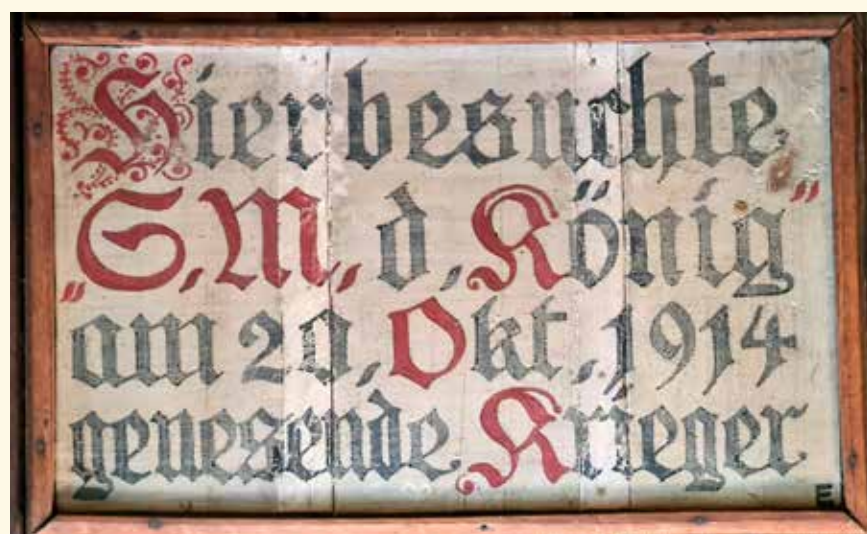 Hier besuchte
„S. M. d. König"
am 20. Okt. 1914
genesende Krieger
E